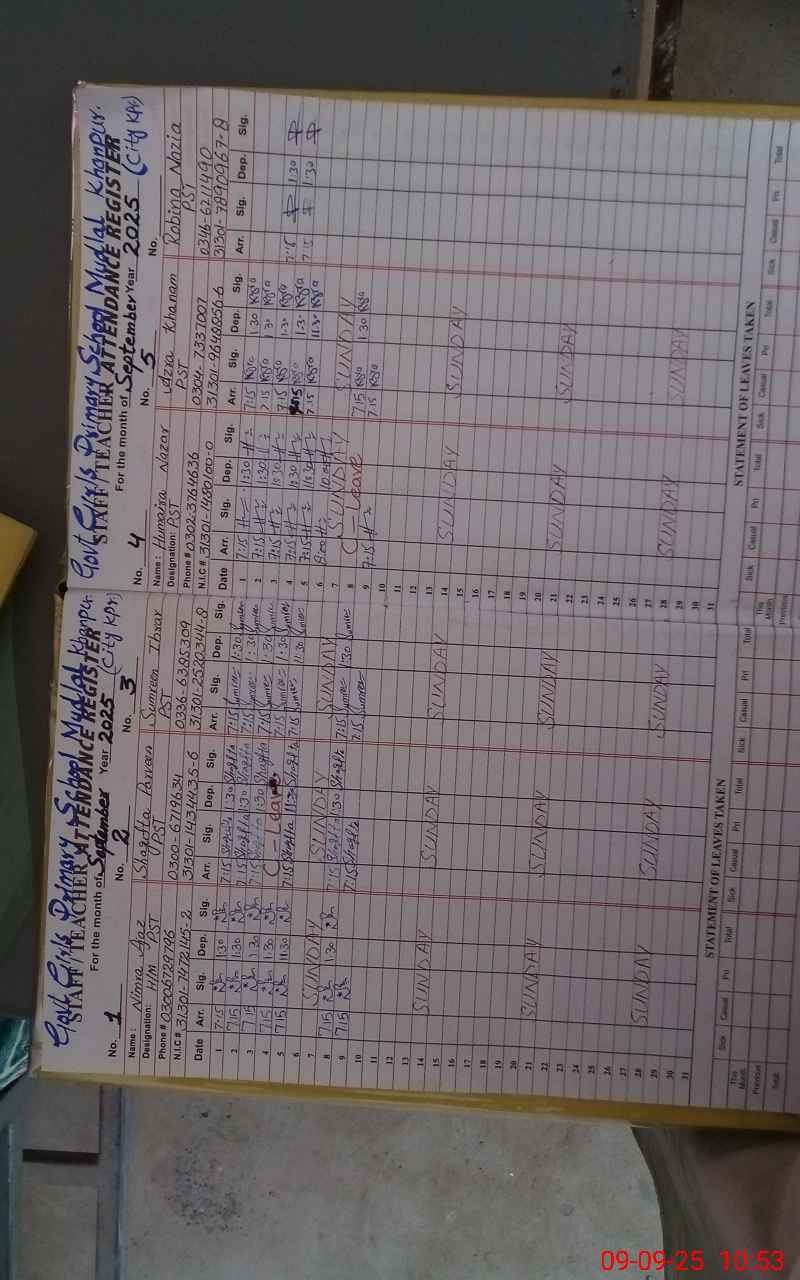 Govt. Girls Primary School Mudlal Khanpur.
STAFF/TEACHER ATTENDANCE REGISTER
For the month of September Year 2025 (City KPr)
No. 1 No. 2 No. 3
Name: Nimra Ajaz Shagufta Parveen Sumreen Ibrar
Designation: H/m PST PST PST
Phone # 03006729796 0300-6719634 0336-6385309
N.I.C # 31301-7472145-2 31301-1434435-6 31301-2520344-8
Date Arr. Sig. Dep. Sig. Arr. Sig. Dep. Sig. Arr. Sig. Dep. Sig.
1 7:15 1:30 7:15 Shagufta 1:30 Shagufta 7:15 Sumreen 1:30 Sumreen
2 7:15 1:30 7:15 Shagufta 1:30 Shagufta 7:15 Sumreen 1:30 Sumreen
3 7:15 1:30 7:15 Shagufta 1:30 Shagufta 7:15 Sumreen 1:30 Sumreen
4 7:15 1:30 C-Leave 7:15 Sumreen 1:30 Sumreen
5 7:15 11:30 7:15 Shagufta 11:30 Shagufta 7:15 Sumreen 11:30 Sumreen
6
7 SUNDAY SUNDAY SUNDAY
8 7:15 1:30 7:15 Shagufta 1:30 Shagufta 7:15 Sumreen 1:30 Sumreen
9 7:15 7:15 Shagufta 7:15 Sumreen
10
11
12
13
14 SUNDAY SUNDAY SUNDAY
15
16
17
18
19
20
21 SUNDAY SUNDAY SUNDAY
22
23
24
25
26
27
28 SUNDAY SUNDAY SUNDAY
29
30
31
STATEMENT OF LEAVES TAKEN
Sick Casual Pri Total Sick Casual Pri Total Sick Casual Pri Total
This Month
Previous
Total
Govt Girls Primary School Mudlal Khanpur.
STAFF/TEACHER ATTENDANCE REGISTER
For the month of September Year 2025 (City KPr)
No. 4 No. 5 No.
Name: Humaira Nazar Uzra Khanam Robina Nazia
Designation: PST PST PST
Phone # 0302-3764636 0304-7337007 0346-6211490
N.I.C # 31301-1480100-0 31301-9848956-6 31301-7890967-8
Date Arr. Sig. Dep. Sig. Arr. Sig. Dep. Sig. Arr. Sig. Dep. Sig.
1 7:15 1:30 7:15 1:30
2 7:15 1:30 7:15 1:30
3 7:15 1:30 7:15 1:30
4 7:15 1:30 7:15 1:30 7:15 1:30
5 7:15 11:30 7:15 11:30 7:15 1:30
6 8:00 10:00
7 SUNDAY SUNDAY
8 C-Leave 7:15 1:30
9 7:15 7:15
10
11
12
13
14 SUNDAY SUNDAY
15
16
17
18
19
20
21 SUNDAY SUNDAY
22
23
24
25
26
27
28 SUNDAY SUNDAY
29
30
31
STATEMENT OF LEAVES TAKEN
Sick Casual Pri Total Sick Casual Pri Total Sick Casual Pri Total
This Month
Previous
Total
09-09-25 10:53